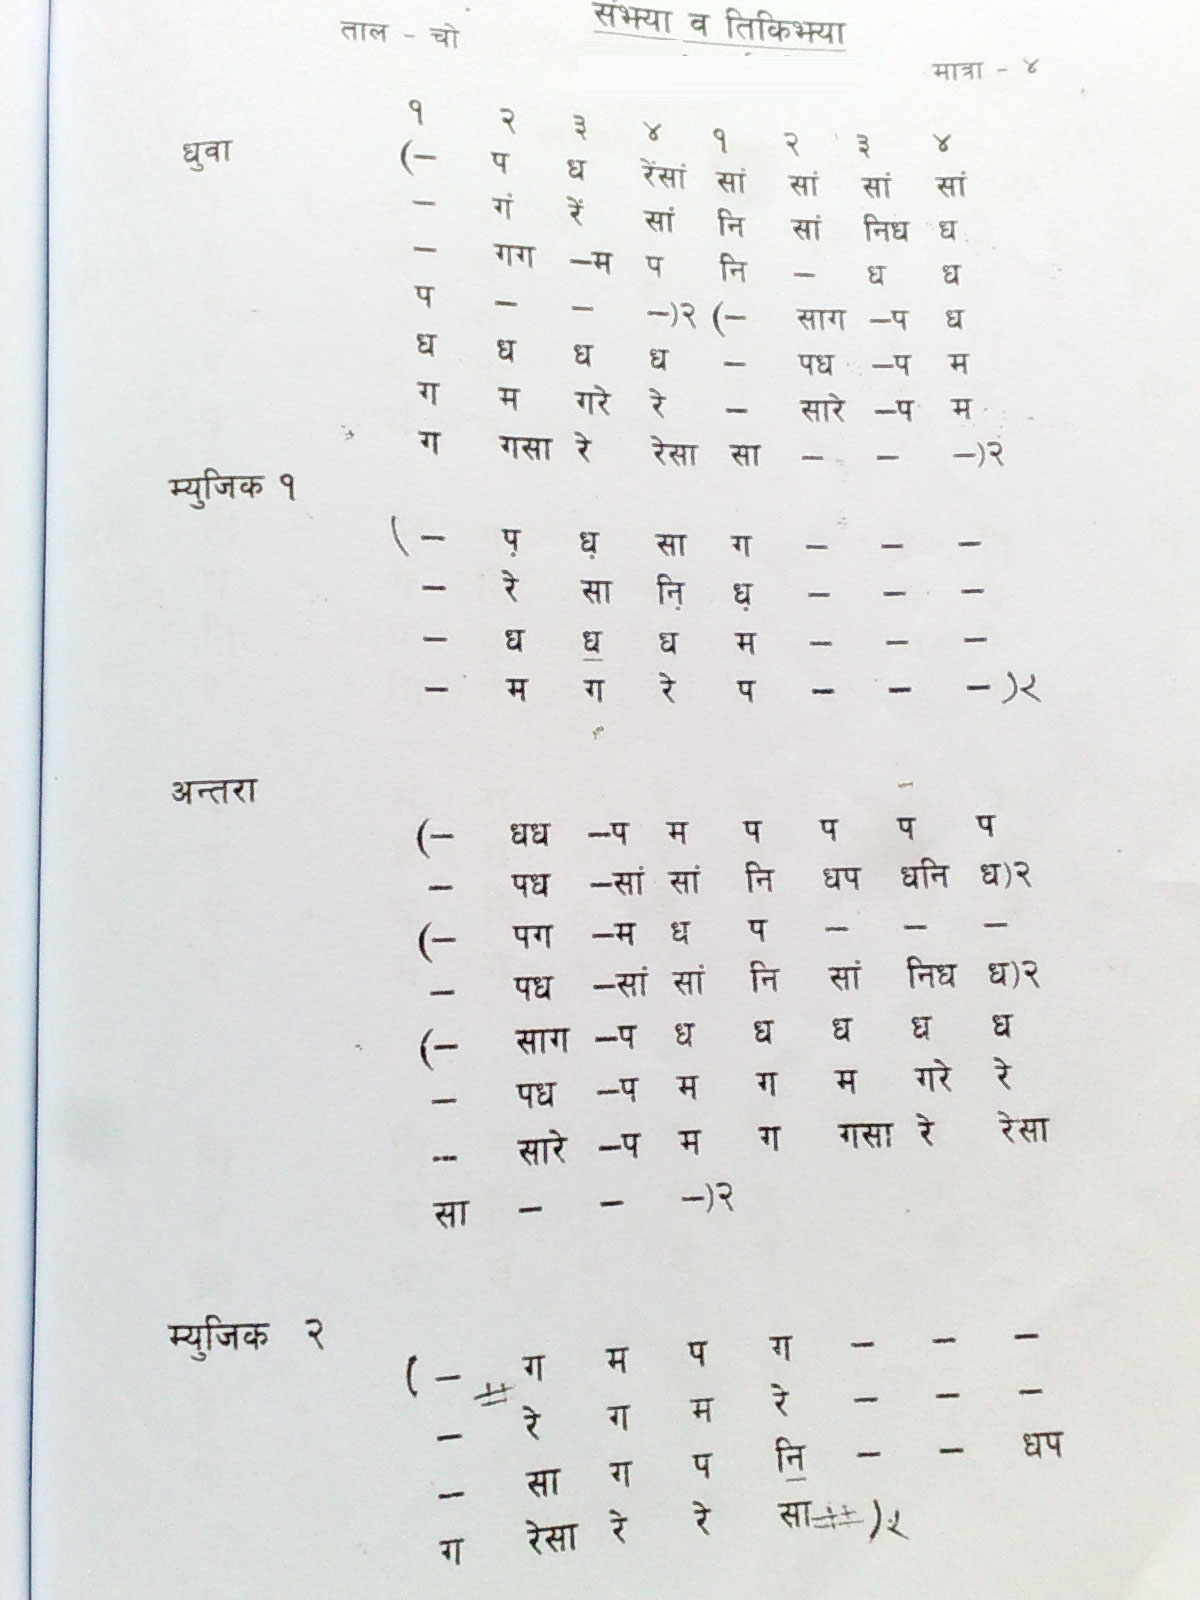 संझ्या व तिकिझ्या
ताल - चो
मात्रा - ४
१ २ ३ ४ १ २ ३ ४
धुवा (– प ध रेंसां सां सां सां सां
– गं रें सां नि सां निध ध
– गग –म प नि – ध ध
प – – –)२ (– साग –प ध
ध ध ध ध – पध –प म
ग म गरे रे – सारे –प म
ग गसा रे रेसा सा – – –)२
म्युजिक १
(– प़ ध़ सा ग – – –
– रे सा नि़ ध़ – – –
– ध ध॒ ध म – – –
– म ग रे प – – –)२
अन्तरा
(– धध –प म प प प प
– पध –सां सां नि धप धनि ध)२
(– पग –म ध प – – –
– पध –सां सां नि सां निध ध)२
(– साग –प ध ध ध ध ध
– पध –प म ग म गरे रे
– सारे –प म ग गसा रे रेसा
सा – – –)२
म्युजिक २
(– ग म प ग – – –
– रे ग म रे – – –
– सा ग प नि॒ – – धप
ग रेसा रे रे सा )२